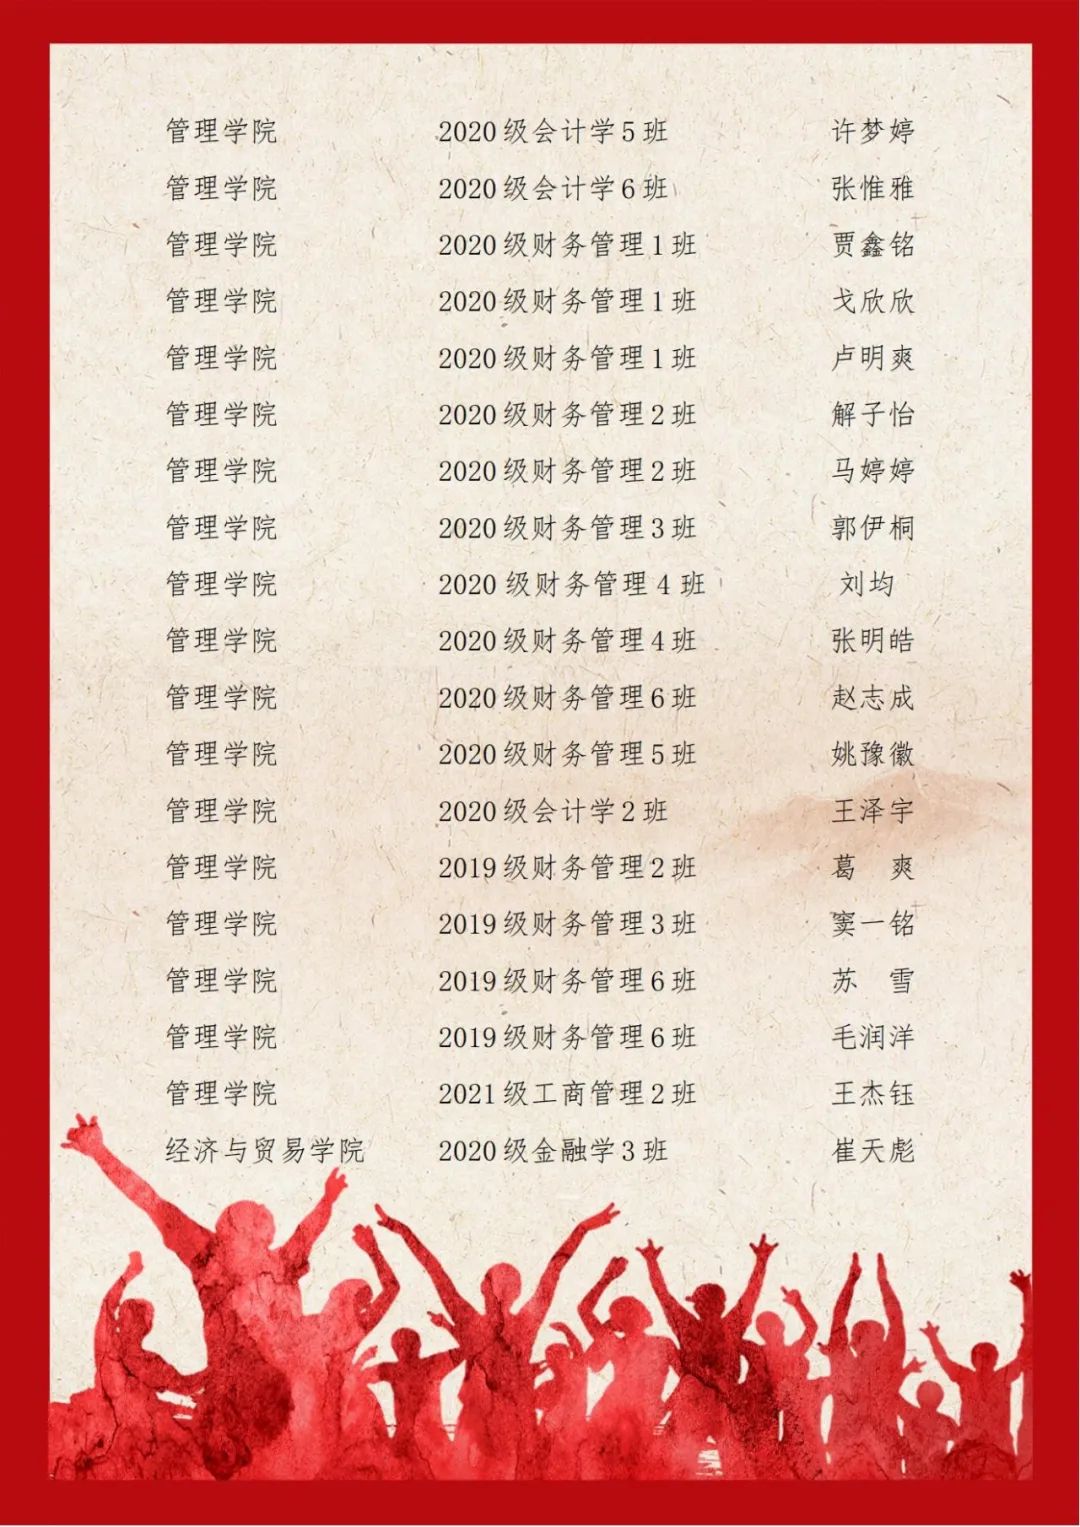 管理学院 2020级会计学5班 许梦婷
管理学院 2020级会计学6班 张惟雅
管理学院 2020级财务管理1班 贾鑫铭
管理学院 2020级财务管理1班 戈欣欣
管理学院 2020级财务管理1班 卢明爽
管理学院 2020级财务管理2班 解子怡
管理学院 2020级财务管理2班 马婷婷
管理学院 2020级财务管理3班 郭伊桐
管理学院 2020级财务管理4班 刘均
管理学院 2020级财务管理4班 张明皓
管理学院 2020级财务管理6班 赵志成
管理学院 2020级财务管理5班 姚豫徽
管理学院 2020级会计学2班 王泽宇
管理学院 2019级财务管理2班 葛 爽
管理学院 2019级财务管理3班 窦一铭
管理学院 2019级财务管理6班 苏 雪
管理学院 2019级财务管理6班 毛润洋
管理学院 2021级工商管理2班 王杰钰
经济与贸易学院 2020级金融学3班 崔天彪